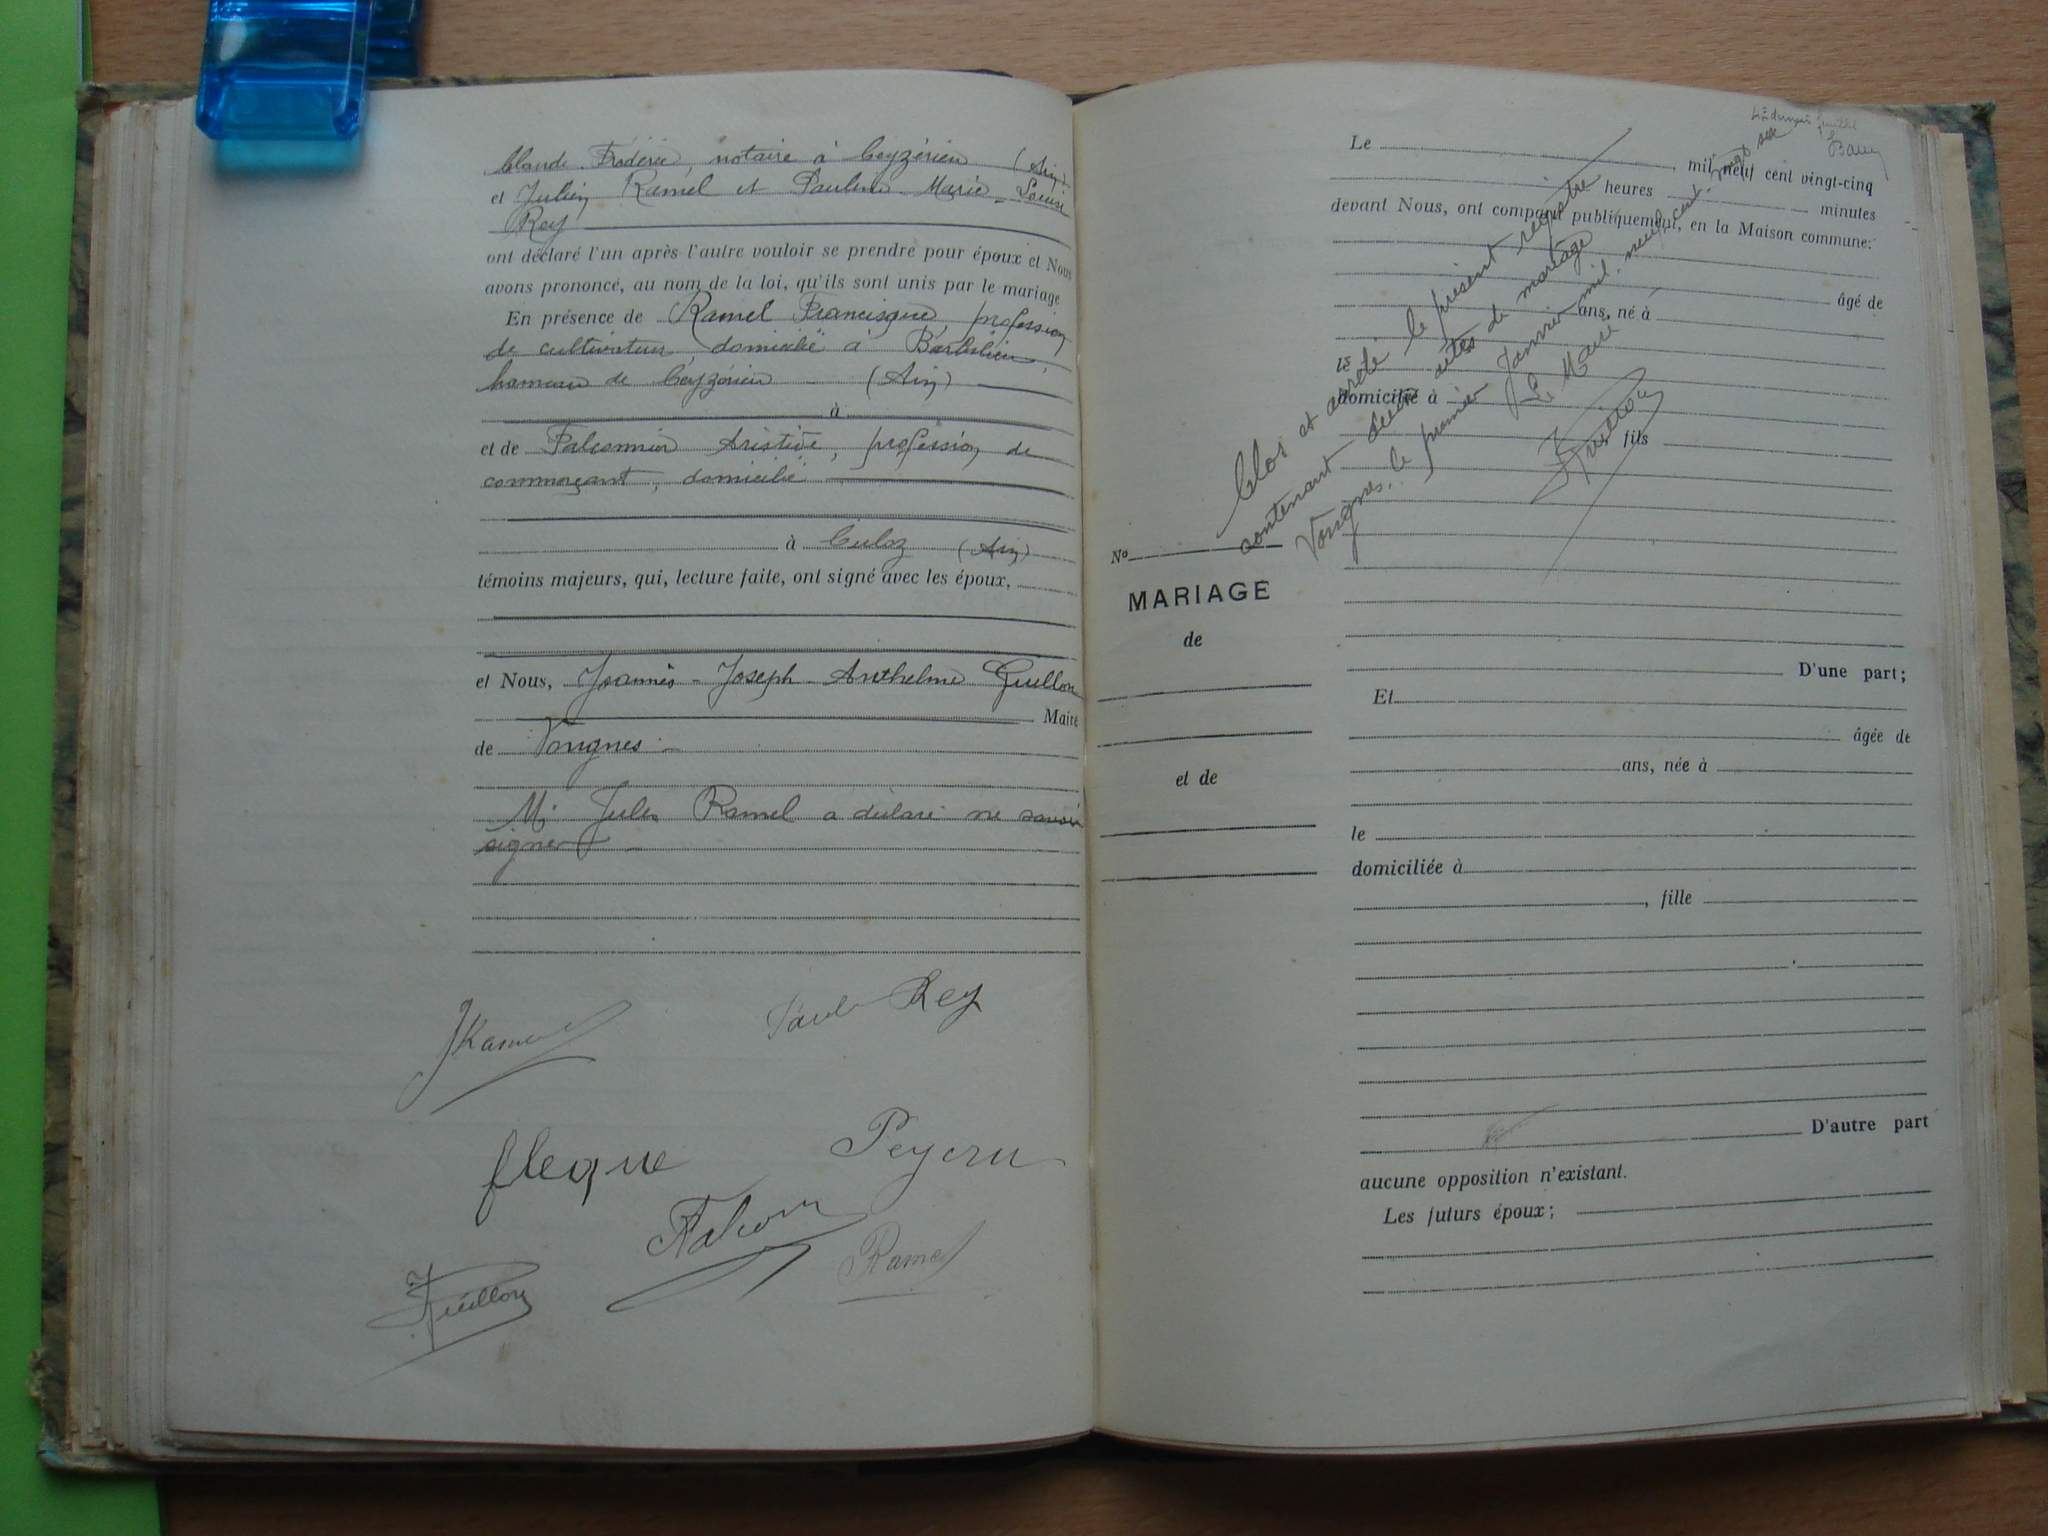 Claude Frédéric, notaire à Ceyzérieu (Ain)
et Julien Ramel et Pauline-Marie-Louise
Rey
ont déclaré l'un après l'autre vouloir se prendre pour époux et Nous
avons prononcé, au nom de la loi, qu'ils sont unis par le mariage
En présence de Ramel Francisque, profession
de cultivateur, domicilié à
hameau de Ceyzérieu (Ain)
à
et de Falconnier Aristide, profession de
commerçant, domicilié
à Culoz (Ain)
témoins majeurs, qui, lecture faite, ont signé avec les époux,
et Nous, Joannès-Joseph-Anthelme Guillon
Maire
de Vongnes.
Mr Jules Ramel a déclaré ne savoir
signer
JRamel
Paule Rey
fleque
Peyeru
AFalconn
JGuillon
Ramel
4e dernier feuillet
Le
mil neuf cent vingt-cinq
heures minutes
devant Nous, ont comparu publiquement, en la Maison commune:
âgé de
ans, né à
le
domicilié à
fils
Clos et arrêté le présent registre
contenant deux actes de mariage
Vongnes, le premier Janvier mil neuf cent vingt six
Le Maire
JGuillon
No
MARIAGE
de
et de
D'une part;
Et
âgée de
ans, née à
le
domiciliée à
, fille
D'autre part
aucune opposition n'existant.
Les futurs époux;